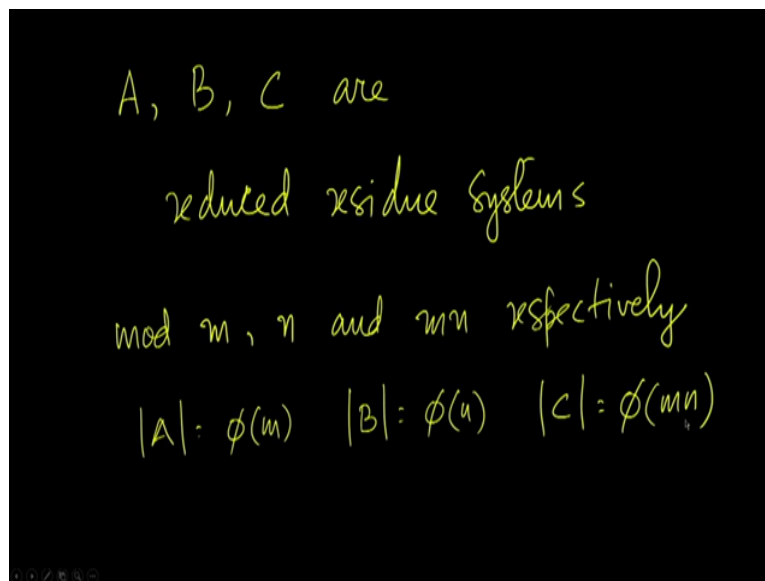 A, B, C are
reduced residue systems
mod m, n and mn respectively
|A| = ϕ(m) |B| = ϕ(n) |C| = ϕ(mn)